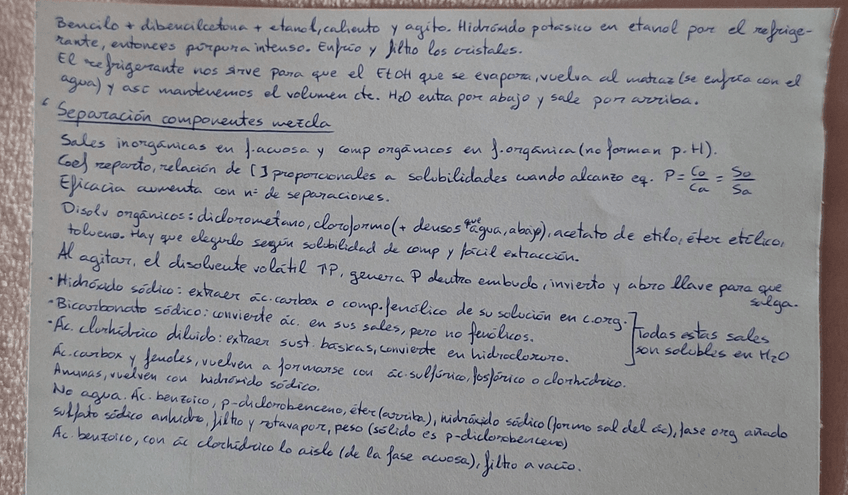 Bencilo + dibencilcetona + etanol, caliento y agito. Hidróxido potásico en etanol por el refrige-
rante, entonces púrpura intenso. Enfrío y filtro los cristales.
El refrigerante nos sirve para que el EtOH que se evapora, vuelva al matraz (se enfría con el
agua) y así mantenemos el volumen cte. H2O entra por abajo y sale por arriba.
Separación componentes mezcla
Sales inorgánicas en f. acuosa y comp orgánicos en f. orgánica (no forman p. H).
Coef reparto, relación de [ ] proporcionales a solubilidades cuando alcanzo eq. P = Co/Ca = So/Sa
Eficacia aumenta con nº de separaciones.
Disolv orgánicos: diclorometano, cloroformo (+ densos que agua, abajo), acetato de etilo, éter etílico,
tolueno. Hay que elegirlo según solubilidad de comp y fácil extracción.
Al agitar, el disolvente volátil ↑P, genera P dentro embudo, invierto y abro llave para que
salga.
· Hidróxido sódico: extraer ác. carbox o comp. fenólico de su solución en c. org.
· Bicarbonato sódico: convierte ác. en sus sales, pero no fenólicos.
· Ác. clorhídrico diluido: extraer sust. básicas, convierte en hidrocloruro.
Todas estas sales
son solubles en H2O
Ác. carbox y fenoles, vuelven a formarse con ác sulfúrico, fosfórico o clorhídrico.
Aminas, vuelven con hidróxido sódico.
No agua. Ác. benzoico, p-diclorobenceno, éter (arriba), hidróxido sódico (formo sal del ác), fase org añado
sulfato sódico anhidro, filtro y rotavapor, peso (sólido es p-diclorobenceno)
Ác. benzoico, con ác clorhídrico lo aíslo (de la fase acuosa), filtro a vacío.